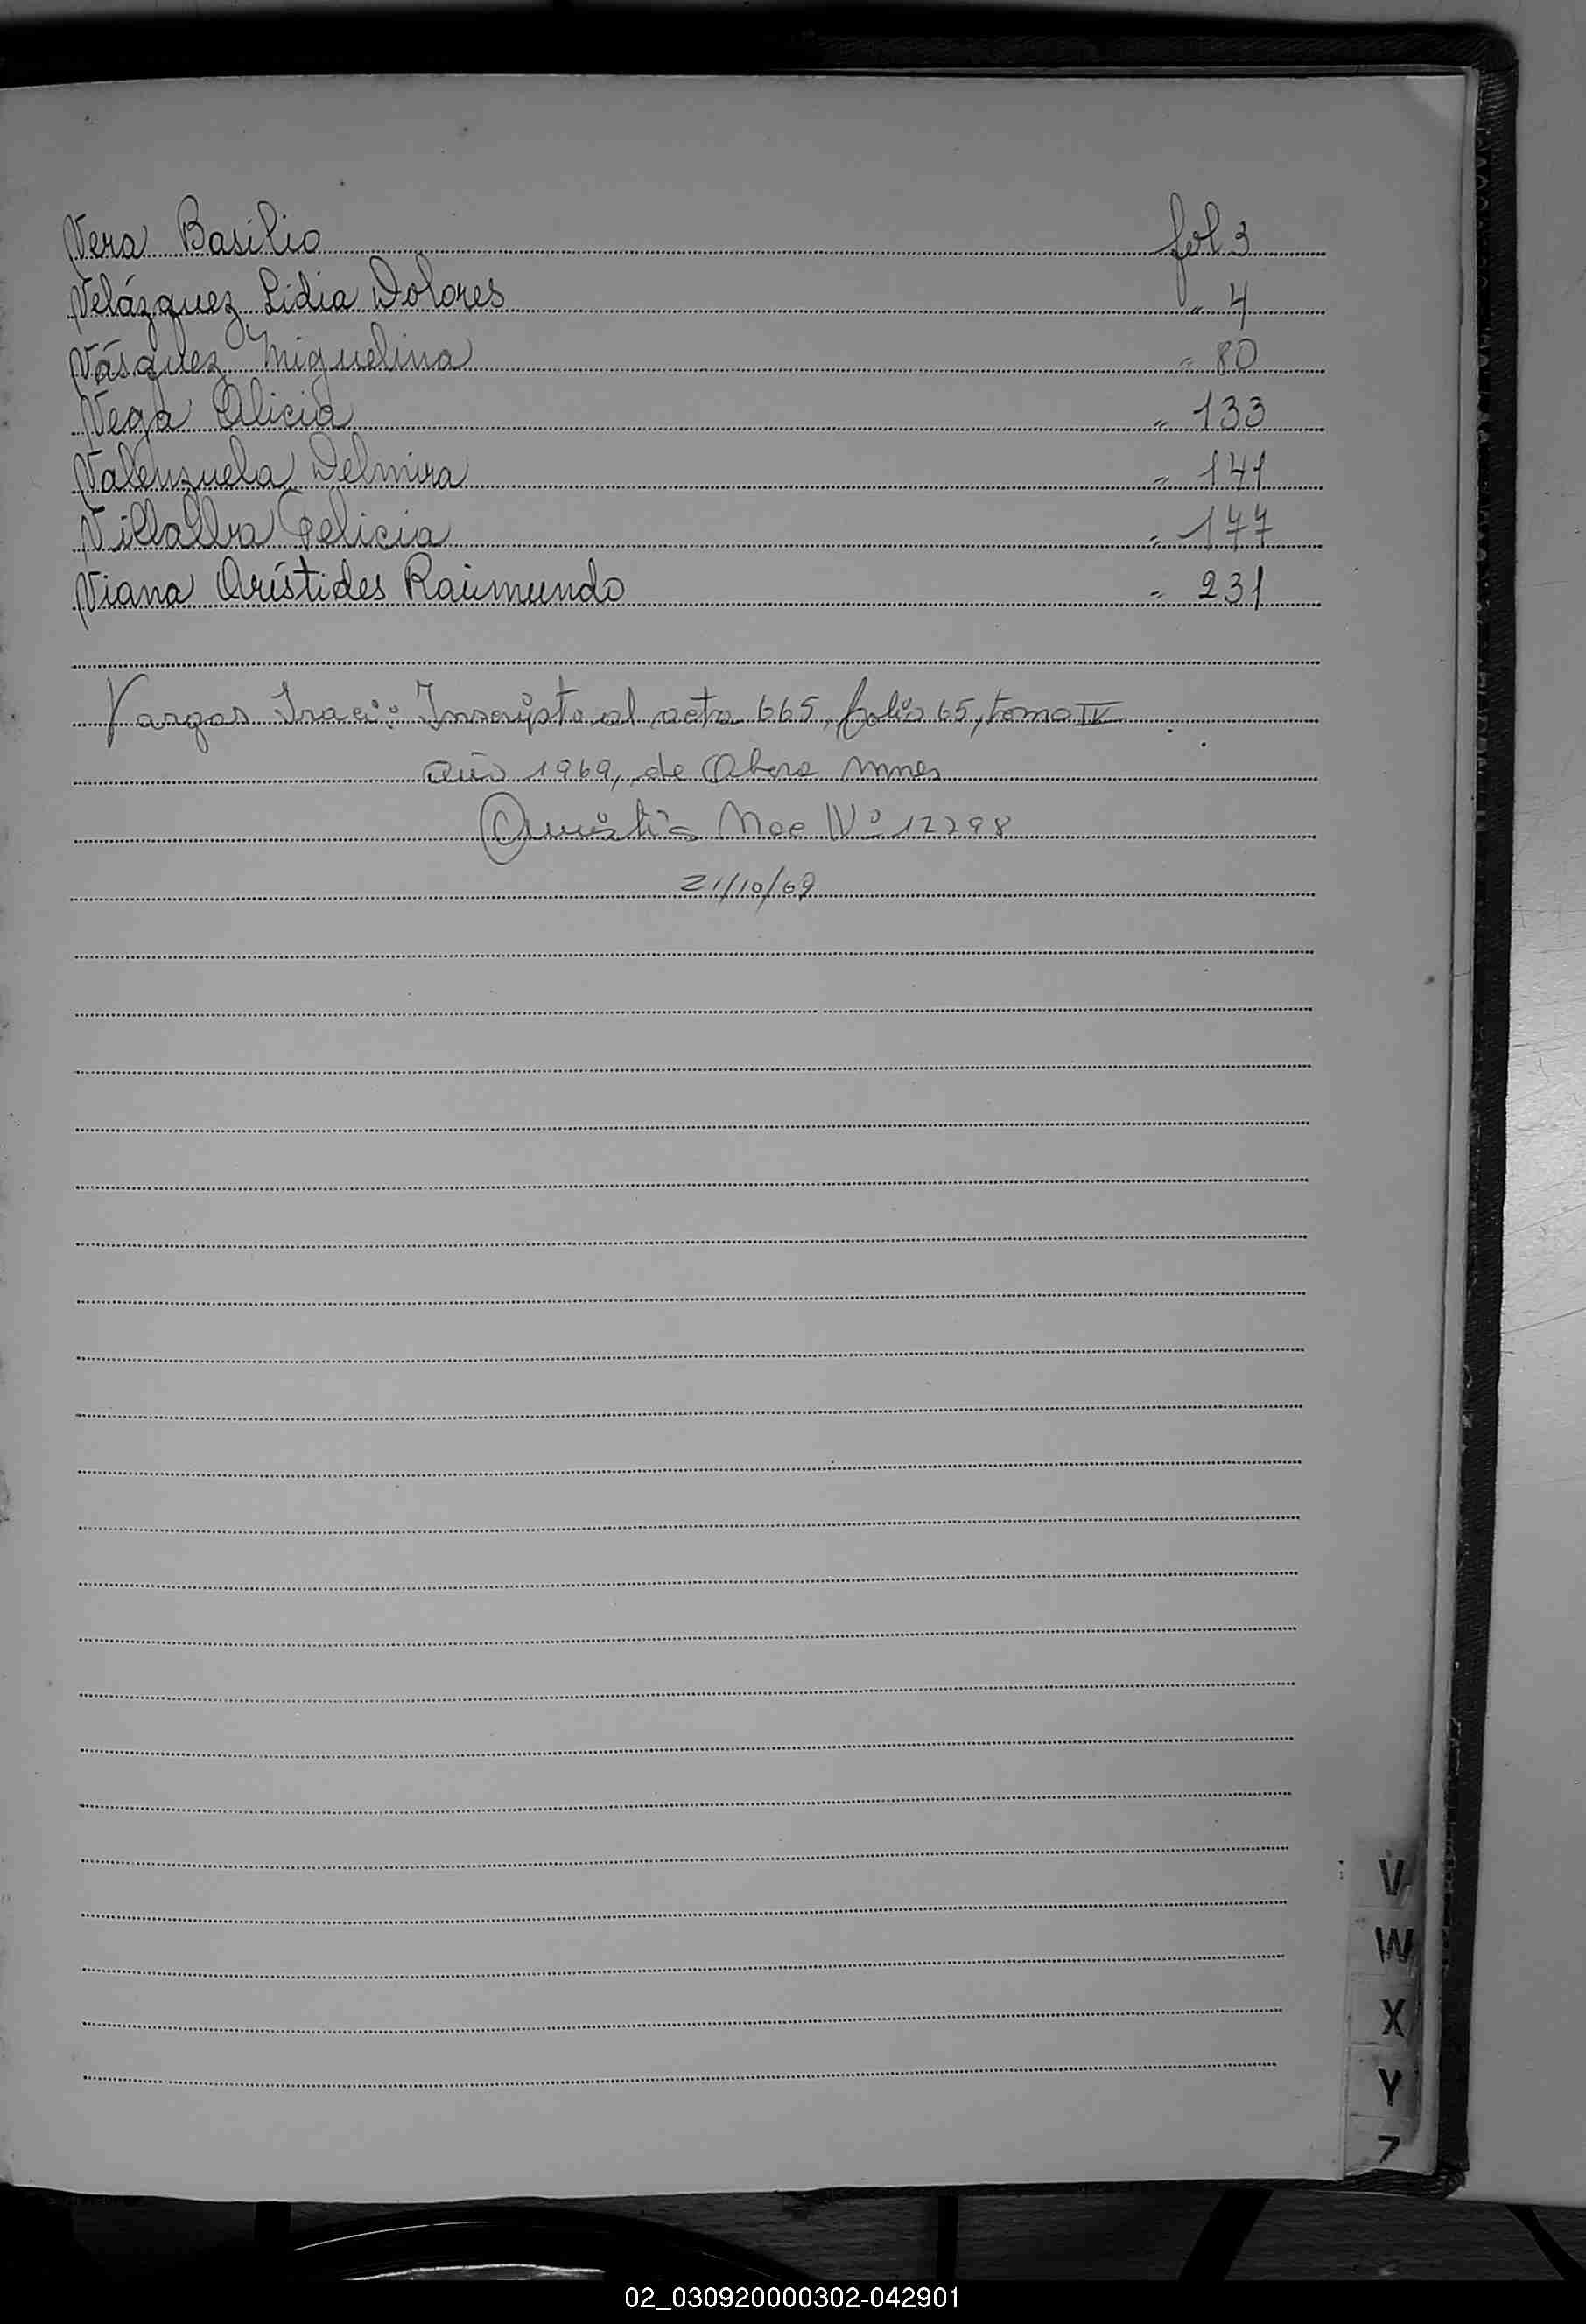 Vera Basilio fol 3
Velázquez Lidia Dolores " 4
Vásquez Miguelina " 80
Vega Alicia " 133
Valenzuela Delmira " 141
Villalba Felicia " 177
Viana Arístides Raimundo " 231
Vargas Iraci: Inscripta al acta 665, folio 65, tomo IV
año 1969, de Obera Mnes
Amnistia Nac Nº 17798
21/10/69
V
W
X
Y
Z
02_030920000302-042901